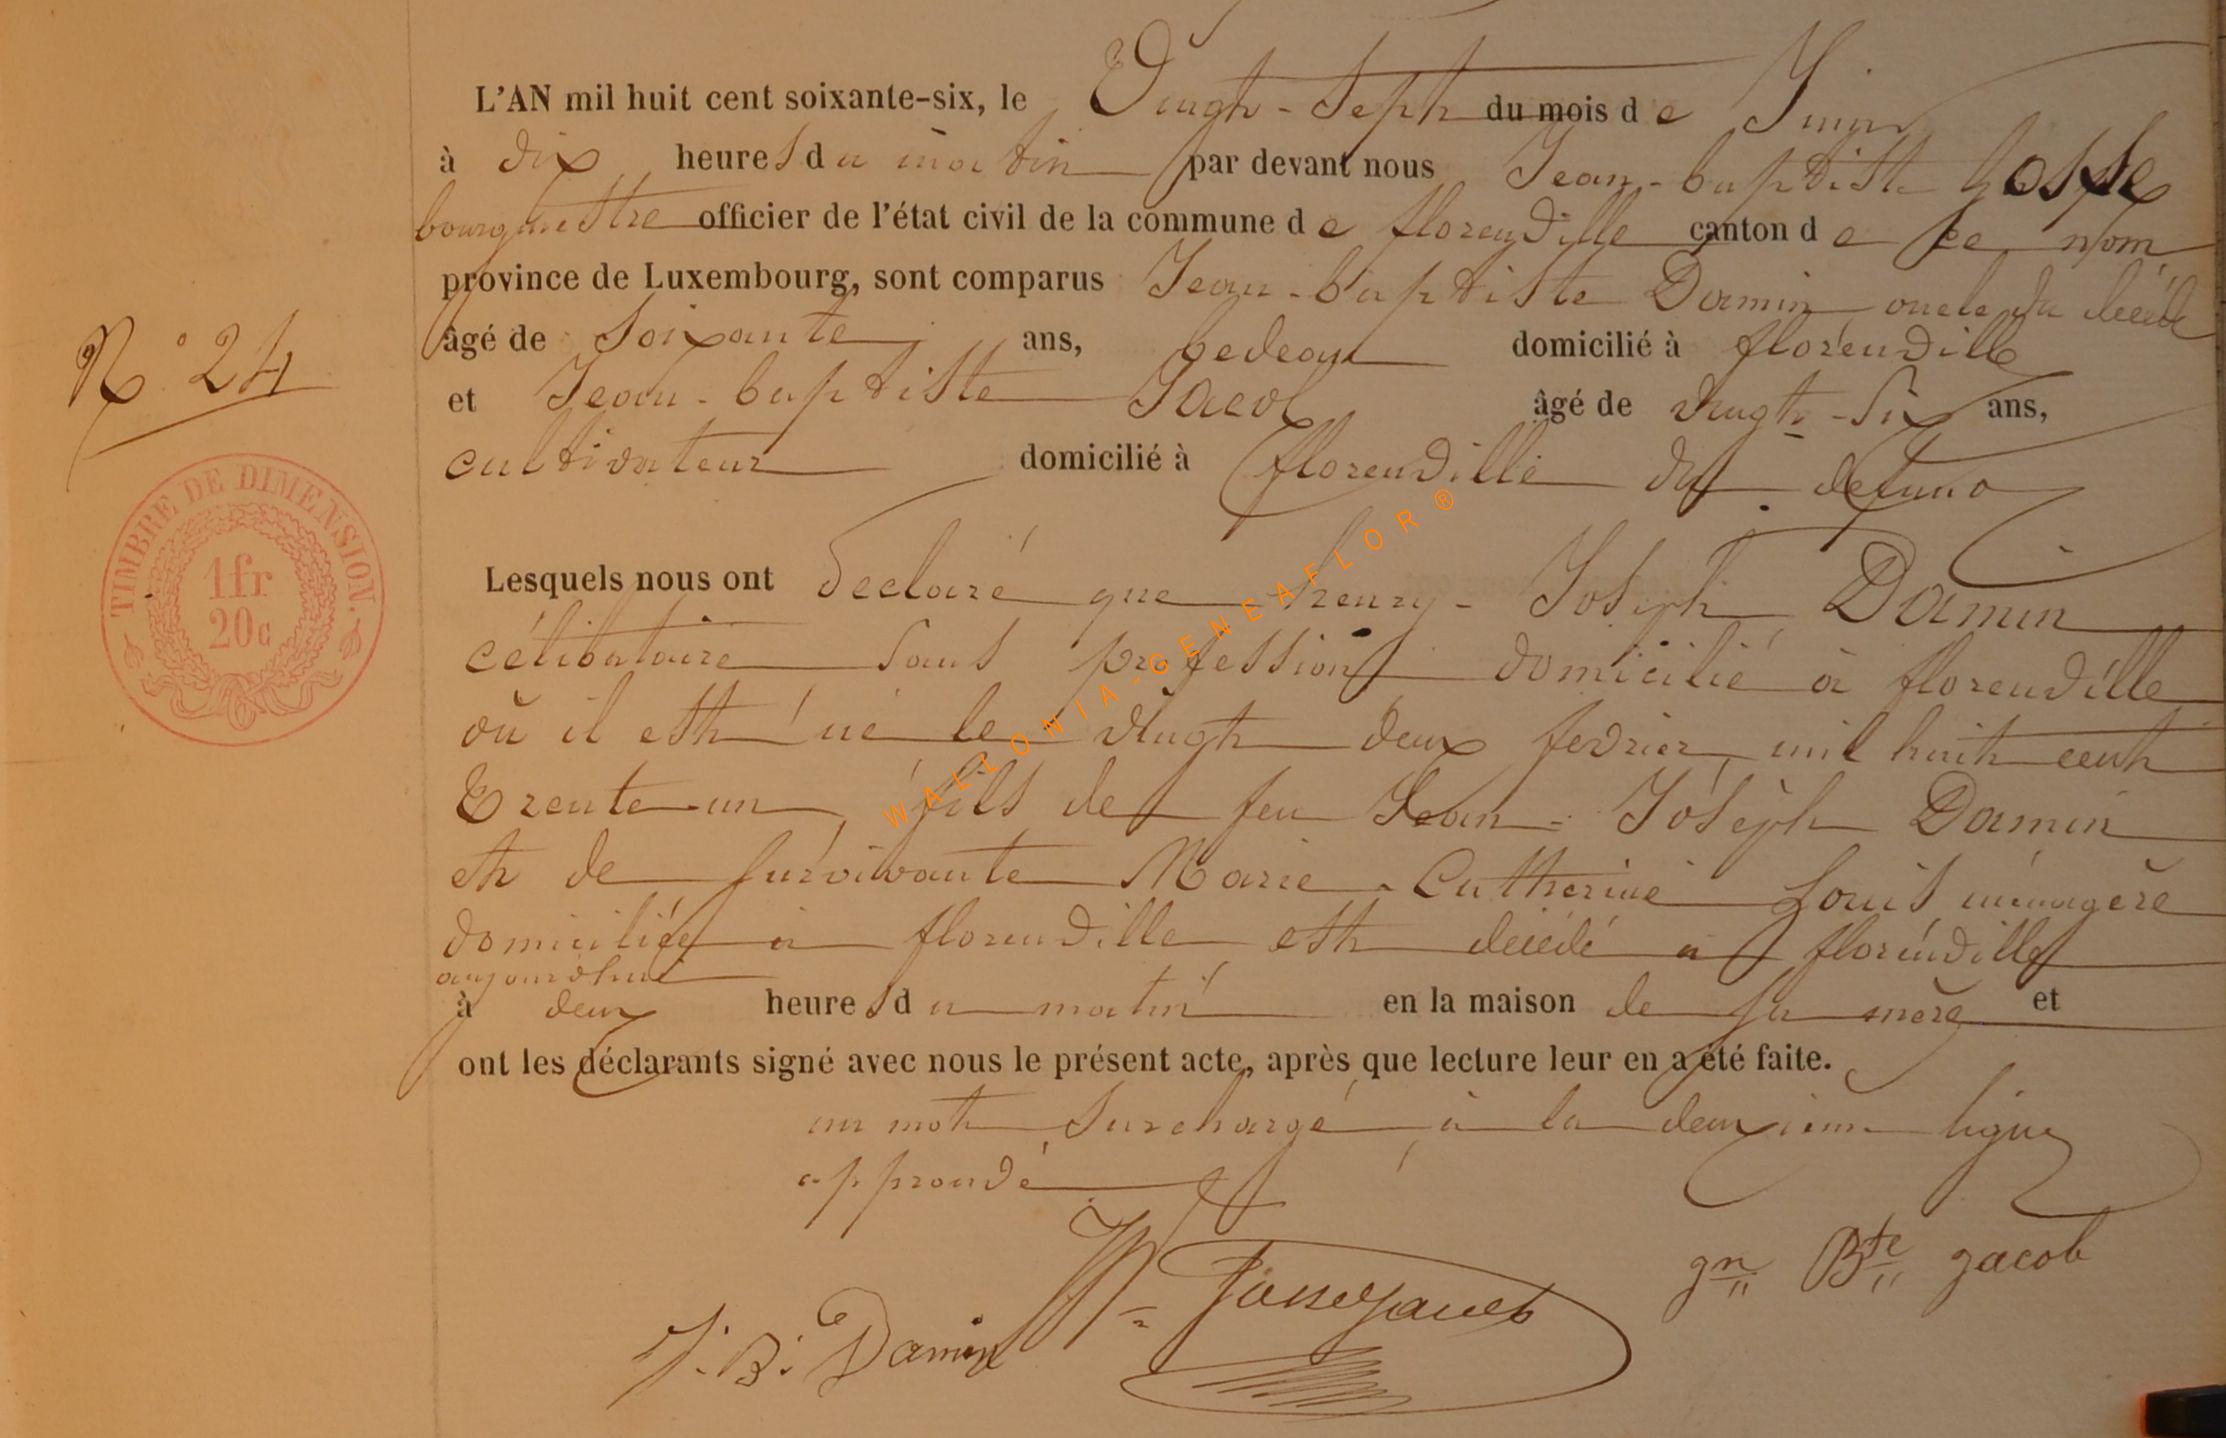 L'AN mil huit cent soixante-six, le Vingt-Sept du mois de Juin
à dix heures du matin par devant nous Jean-baptiste Gosse
bourgmestre officier de l'état civil de la commune de florenville canton de ce nom
province de Luxembourg, sont comparus Jean-baptiste Damin oncle du décédé
âgé de soixante ans, bedeau domicilié à florenville
N° 24
et Jean-baptiste Jacob âgé de vingt-six ans,
cultivateur domicilié à florenville du defunt
TIMBRE DE DIMENSION.
1 fr
20 c
Lesquels nous ont declaré que henry-Joseph Damin
célibataire sans profession domicilié à florenville
où il est né le vingt deux fevrier mil huit cent
trente-un, fils de feu Jean-Joseph Damin
et de survivante Marie-Catherine Louis ménagère
domiciliée à florenville est décédé à florenville
aujourd'hui
à deux heures du matin en la maison de sa mère et
ont les déclarants signé avec nous le présent acte, après que lecture leur en a été faite.
un mot surchargé à la deuxième ligne
approuvé
J. B. Damin
gn Bte jacob
WALLONIA-GENEAFLOR®